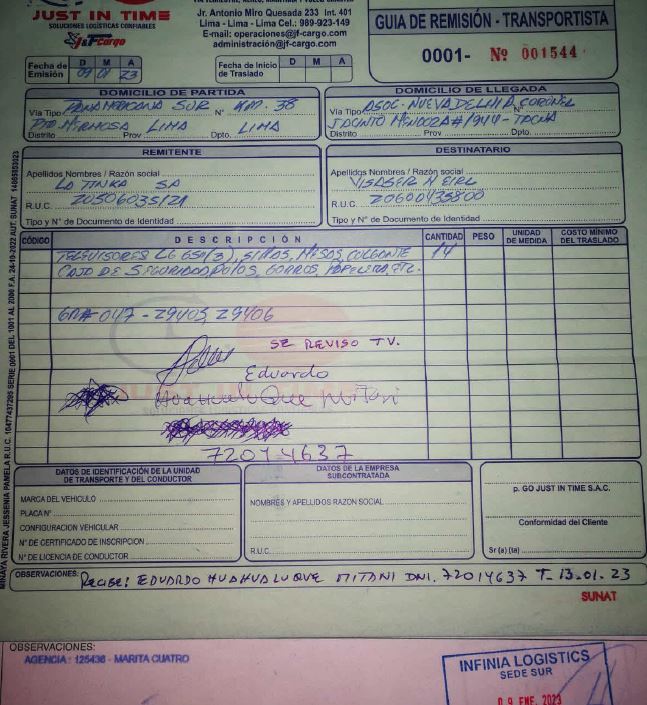 JUST IN TIME
SOLUCIONES LOGÍSTICAS CONFIABLES
J&F Cargo
Jr. Antonio Miro Quesada 233 Int. 401
Lima - Lima - Lima Cel.: 989-923-149
E-mail: operaciones@jf-cargo.com
administración@jf-cargo.com
GUIA DE REMISIÓN - TRANSPORTISTA
0001- Nº 001544
Fecha de Emisión D M A
09 01 23
Fecha de Inicio de Traslado D M A
DOMICILIO DE PARTIDA
Vía Tipo PANAMERICANA SUR Nº KM. 38
PTA HERMOSA LIMA LIMA
Distrito Prov Dpto.
DOMICILIO DE LLEGADA
Vía Tipo ASOC. NUEVA DE Nº CORONEL
JACINTO MENDOZA #1944 - TACNA
Distrito Prov. Dpto.
REMITENTE
Apellidos Nombres / Razón social
LA TINKA SA
R.U.C. 20506035121
Tipo y N° de Documento de Identidad
DESTINATARIO
Apellidos Nombres / Razón social
EIRL
R.U.C. 20600435800
Tipo y N° de Documento de Identidad
CÓDIGO DESCRIPCIÓN CANTIDAD PESO UNIDAD DE MEDIDA COSTO MÍNIMO DEL TRASLADO
TELEVISORES LG 650(3), SILLAS, MESAS, COLGANTE 14
CAJA DE SEGURIDAD, POLOS, GORROS, PAPELERA, ETC.
GR# 047 - 29405, 29406
SE REVISO TV.
Eduardo
Huahualuque Mitani
72014637
DATOS DE IDENTIFICACIÓN DE LA UNIDAD DE TRANSPORTE Y DEL CONDUCTOR
MARCA DEL VEHICULO
PLACA N°
CONFIGURACION VEHICULAR
N° DE CERTIFICADO DE INSCRIPCION
N° DE LICENCIA DE CONDUCTOR
DATOS DE LA EMPRESA SUBCONTRATADA
NOMBRES Y APELLIDOS RAZON SOCIAL
R.U.C.
p. GO JUST IN TIME S.A.C.
Conformidad del Cliente
Sr (a) (ta)
OBSERVACIONES: Recibi: EDUARDO HUAHUALUQUE MITANI DNI. 72014637 T_13-01-23
SUNAT
MINAYA RIVERA JESSENIA PAMELA R.U.C. 10477437295 SERIE 0001 DEL 1001 AL 2000 F.A. 24-10-2022 AUT. SUNAT 14865853023
OBSERVACIONES:
AGENCIA : 125436 - MARITA CUATRO
INFINIA LOGISTICS
SEDE SUR
09 ENE. 2023